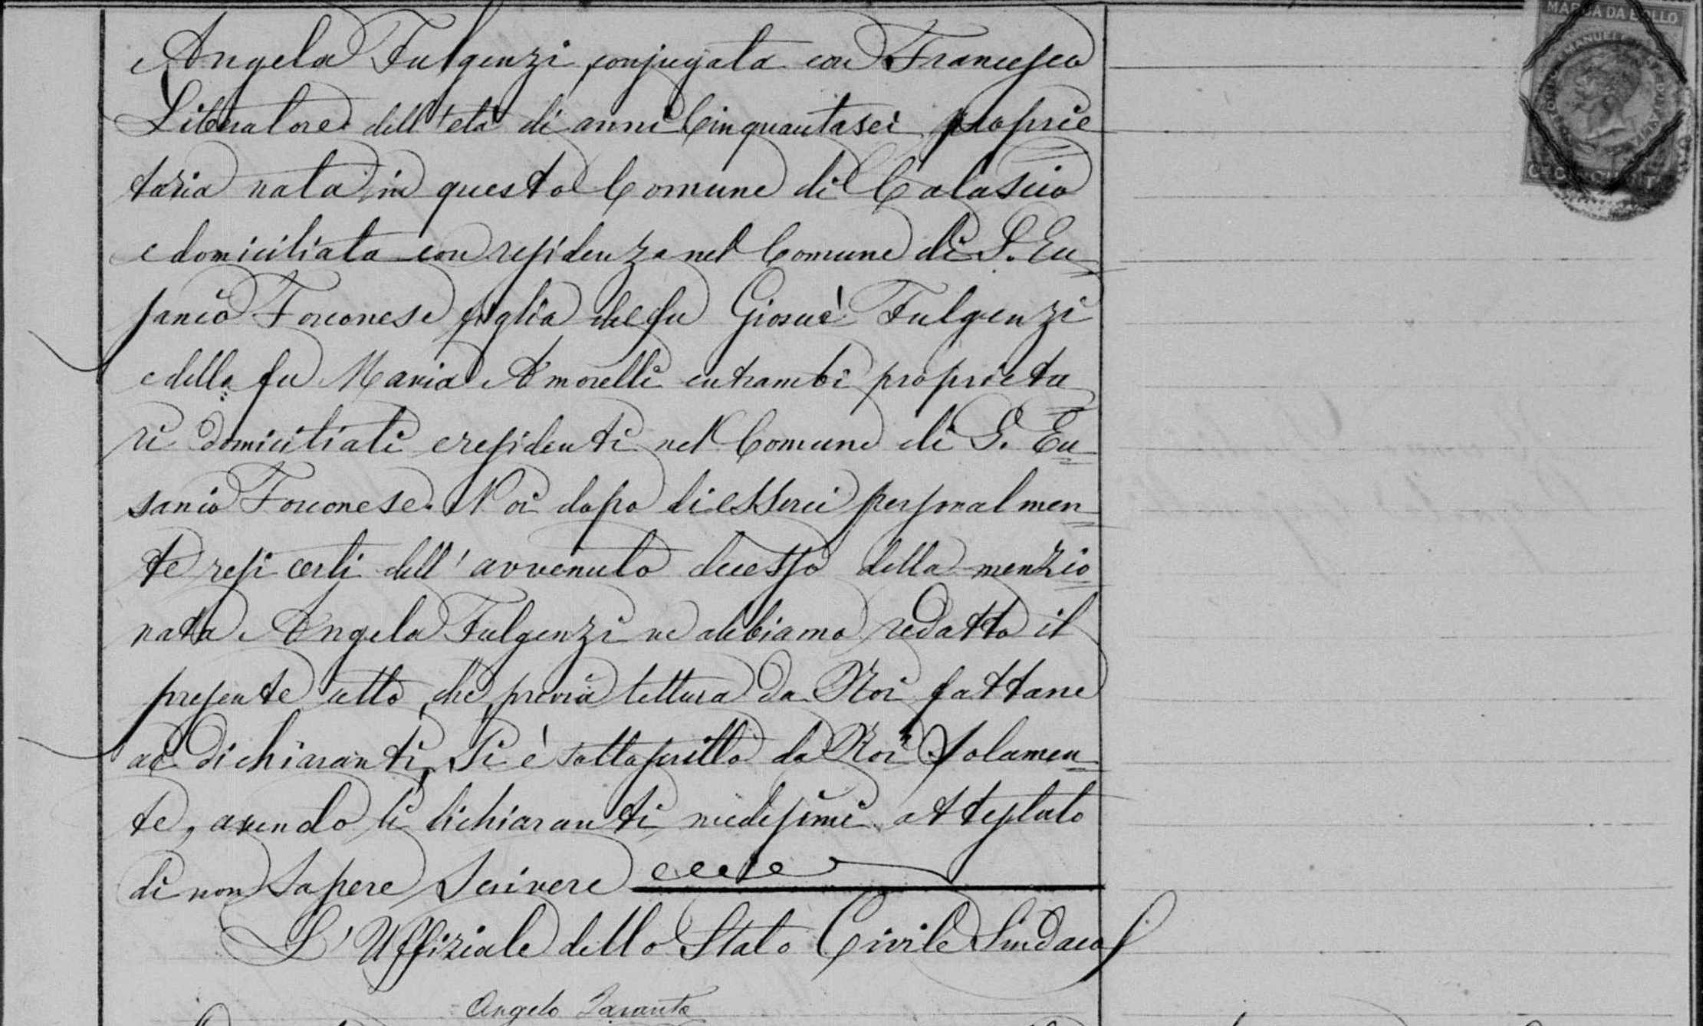 Angela Fulgenzi conjugata con Francesco
Liberatore dell'età di anni Cinquantasei proprie
taria nata in questo Comune di Calascio
e domiciliata con residenza nel Comune di S. Eu
sanio Forconese figlia del fu Giosuè Fulgenzi
e della fu Maria Amorelli entrambi proprieta
ri domiciliati e residenti nel Comune di S. Eu
sanio Forconese. Noi dopo di esserci personalmen
te resi certi dell'avvenuto decesso della menzio
nata Angela Fulgenzi ne abbiamo redatto il
presente atto, che previa lettura da Noi fattane
ad dichiaranti, Si è sottoscritto da Noi Solamen
te, avendo li dichiaranti medesimi attestato
di non Sapere Scrivere
L'Uffiziale dello Stato Civile Sindaco
Angelo Taranta
MARCA DA BOLLO